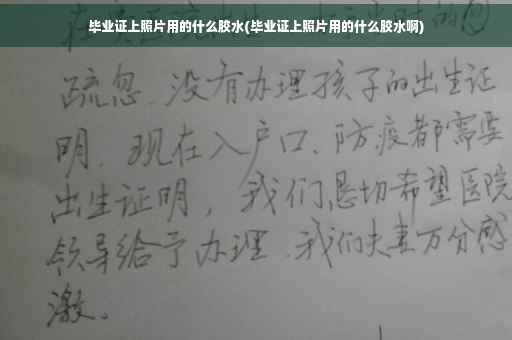 毕业证上照片用的什么胶水(毕业证上照片用的什么胶水啊)
疏忽、没有办理孩子的出生证
明、现在入户口、防疫都需要
出生证明，我们恳切希望医院
领导给予办理、我们夫妻万分感
激。